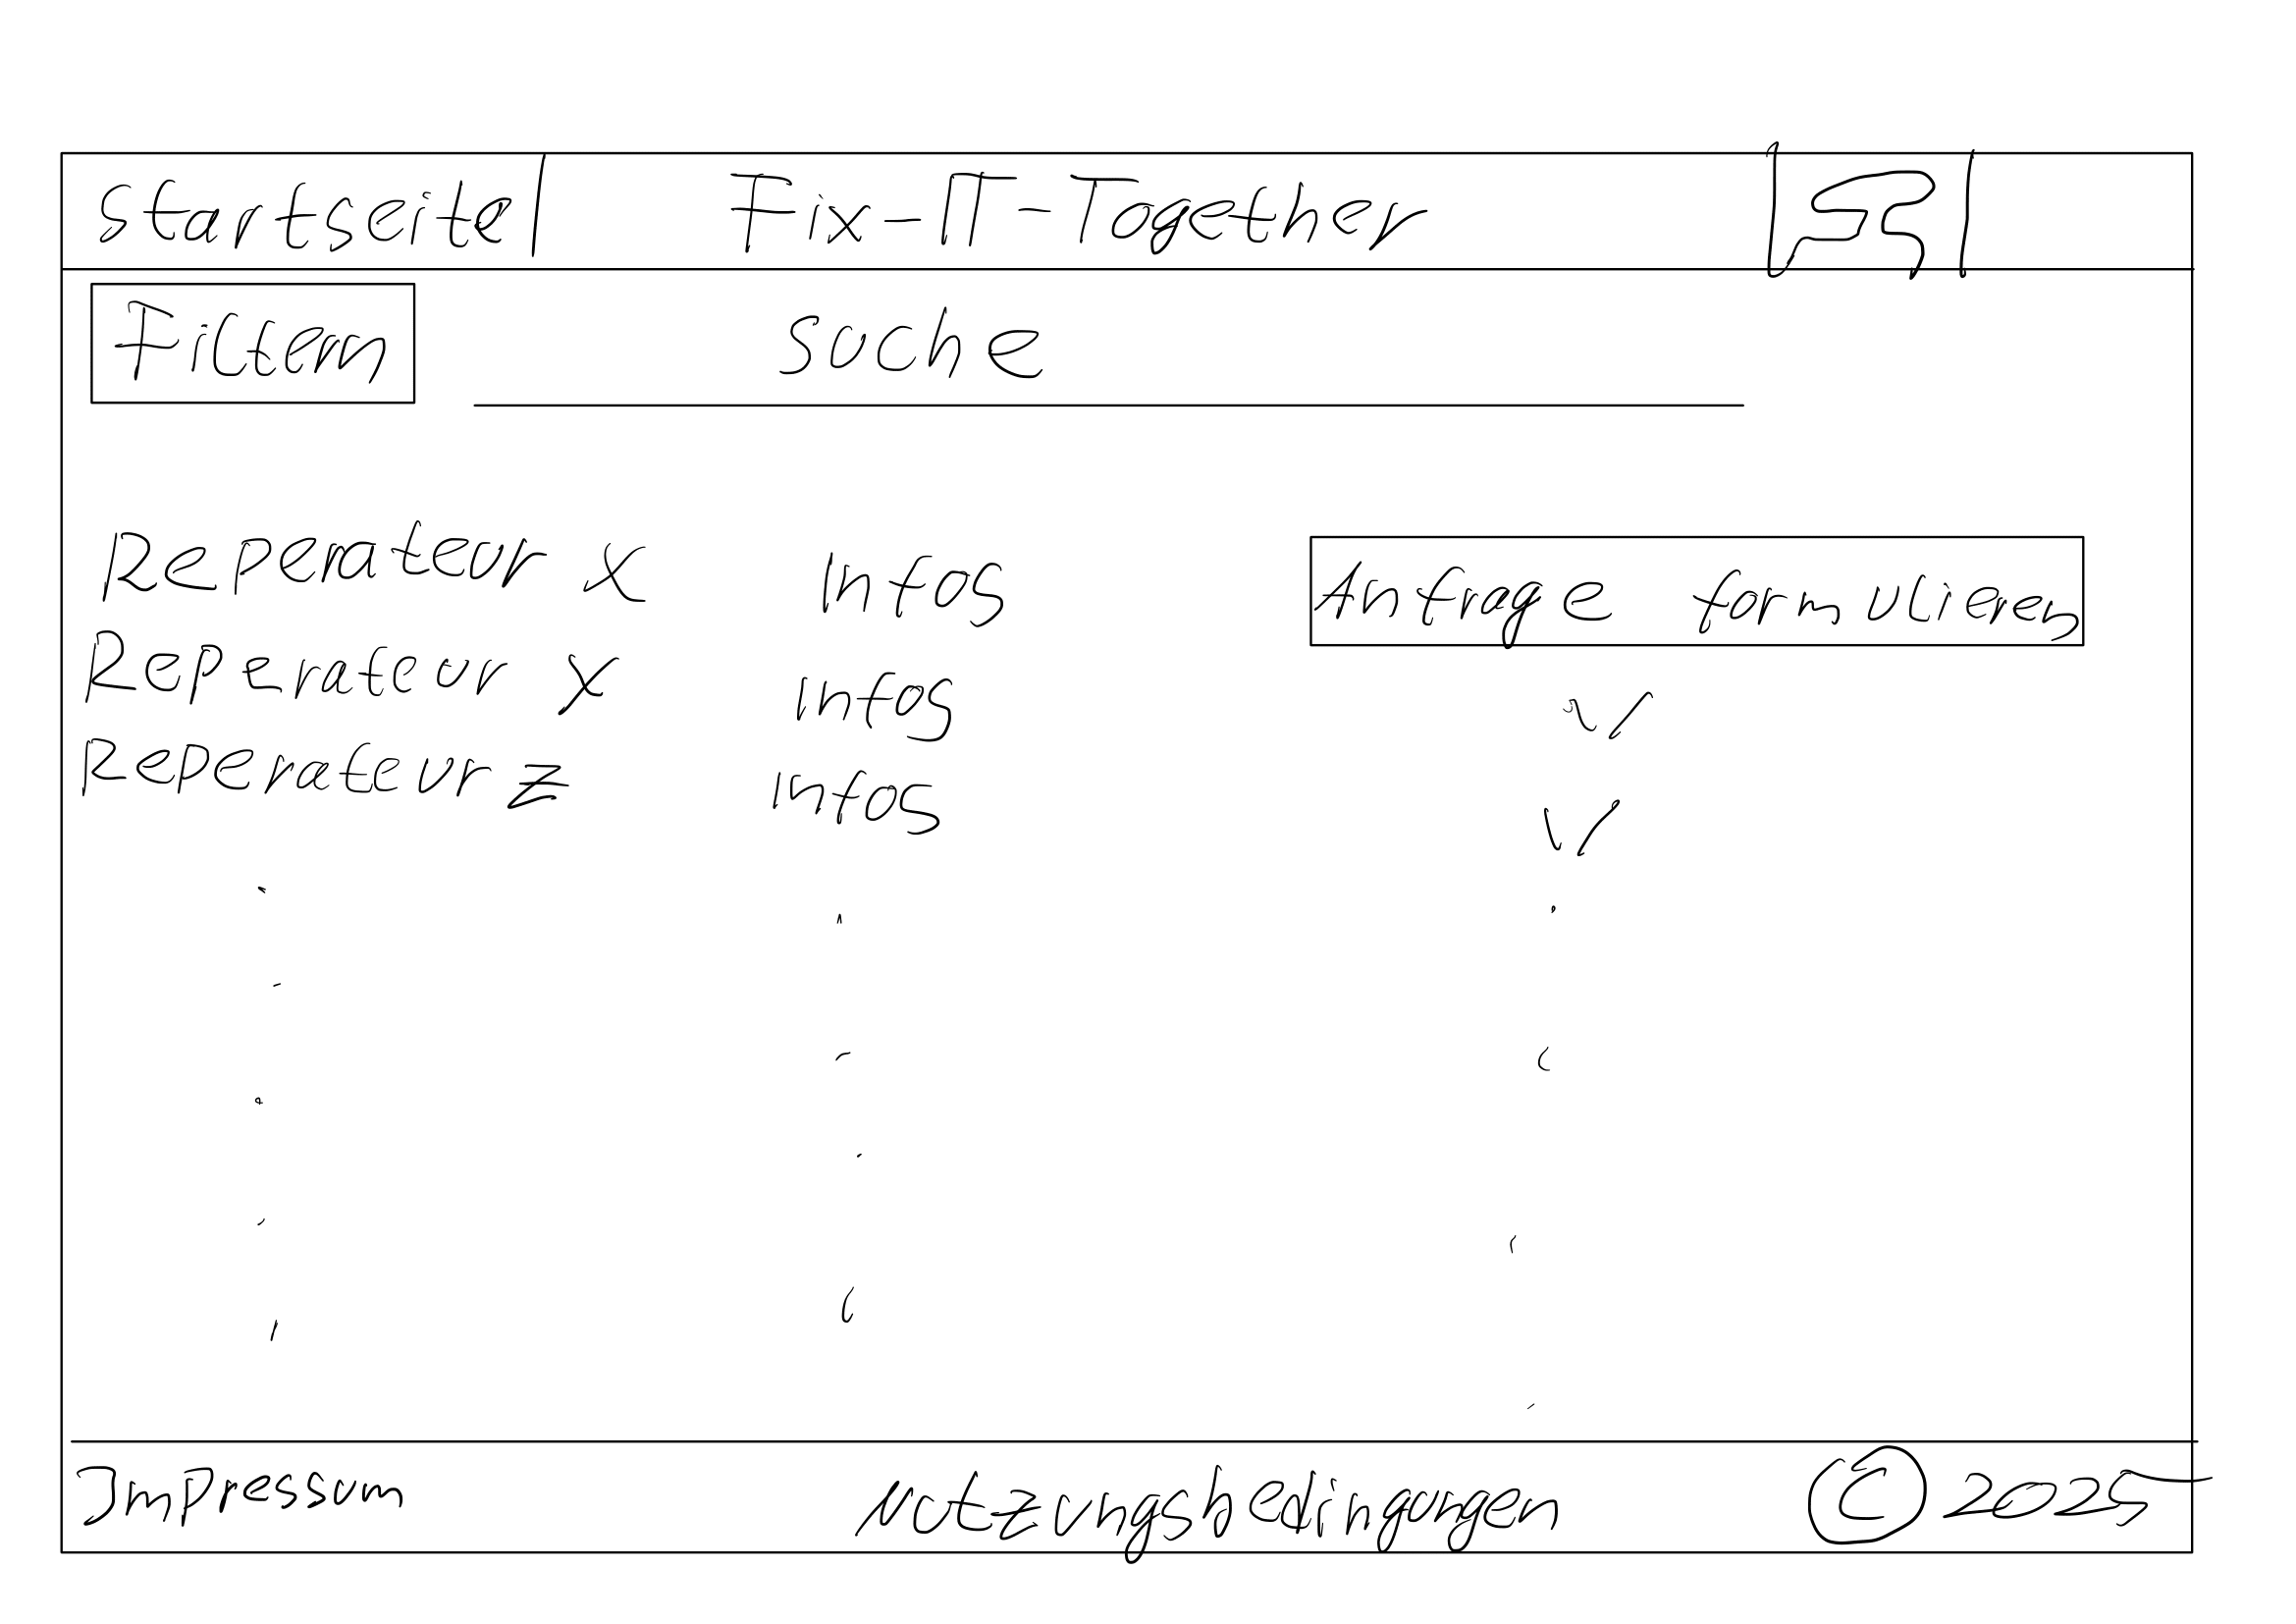 Startseite
Fix-IT-Together
Filtern
Suche
Reperateur X Infos Anfrage formulieren
Reperateur Y Infos
Reperateur Z Infos
Impressum Nutzungsbedingungen © 2025